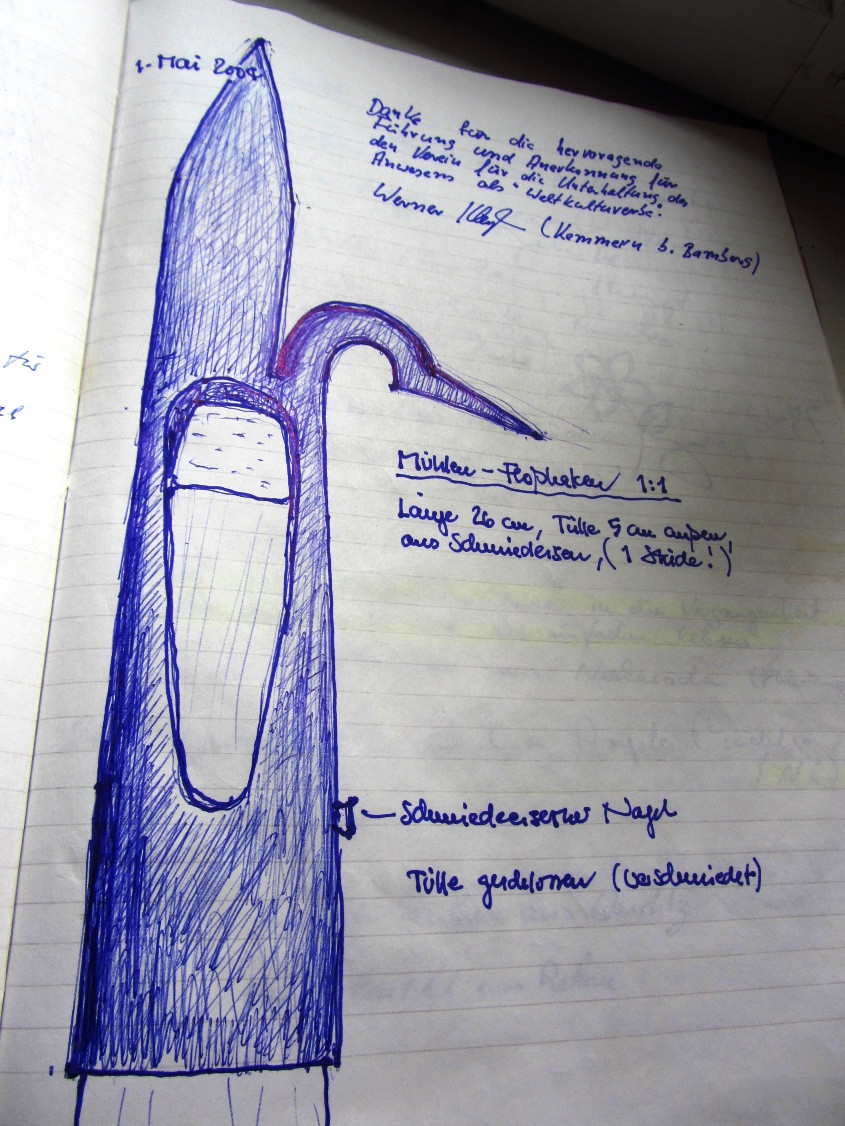 Mai
Danke für die hervoragende
Führung und Anerkennung für
den Verein für die Unterhaltung des
Anwesens als "Weltkulturerbe".
Werner (Kemmern b. Bamberg)
Mühlen-Floßhaken 1:1
Länge 26 cm, Tülle 5 cm außen,
aus Schmiedeeisen, (1 Stück!)
Schmiedeeiserner Nagel
Tülle geschlossen (verschmiedet)
für